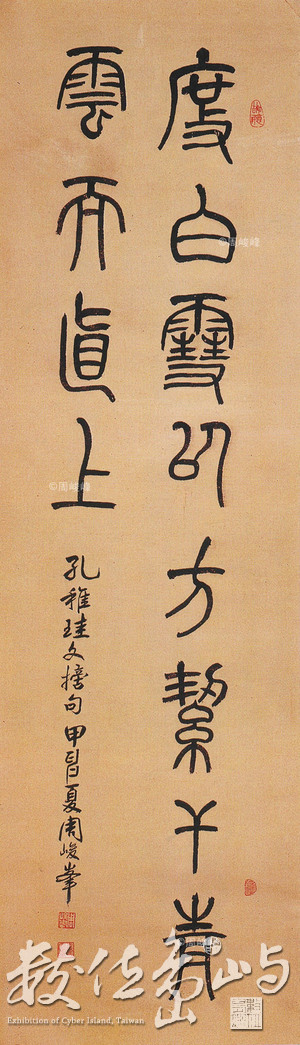 度白雪以方絜干青
雲而直上
孔稚珪文摘句甲子夏周峻峰
©周峻峰
©周峻峰
數位島嶼
Exhibition of Cyber Island, Taiwan